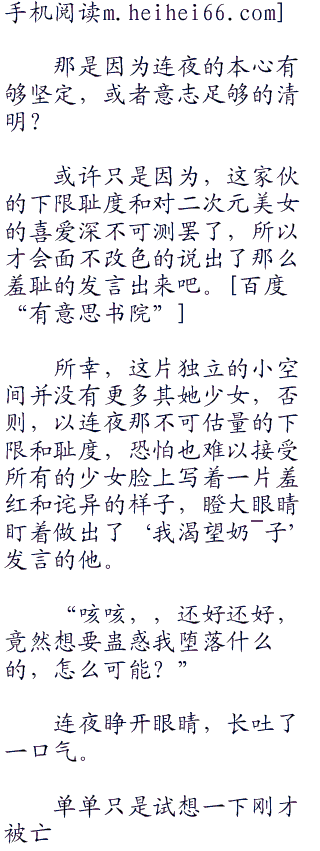 手机阅读m.heihei66.com]
那是因为连夜的本心有
够坚定，或者意志足够的清
明？
或许只是因为，这家伙
的下限耻度和对二次元美女
的喜爱深不可测罢了，所以
才会面不改色的说出了那么
羞耻的发言出来吧。[百度
“有意思书院”]
所幸，这片独立的小空
间并没有更多其她少女，否
则，以连夜那不可估量的下
限和耻度，恐怕也难以接受
所有的少女脸上写着一片羞
红和诧异的样子，瞪大眼睛
盯着做出了‘我渴望奶¯子’
发言的他。
“咳咳，，还好还好，
竟然想要蛊惑我堕落什么
的，怎么可能？”
连夜睁开眼睛，长吐了
一口气。
单单只是试想一下刚才
被亡